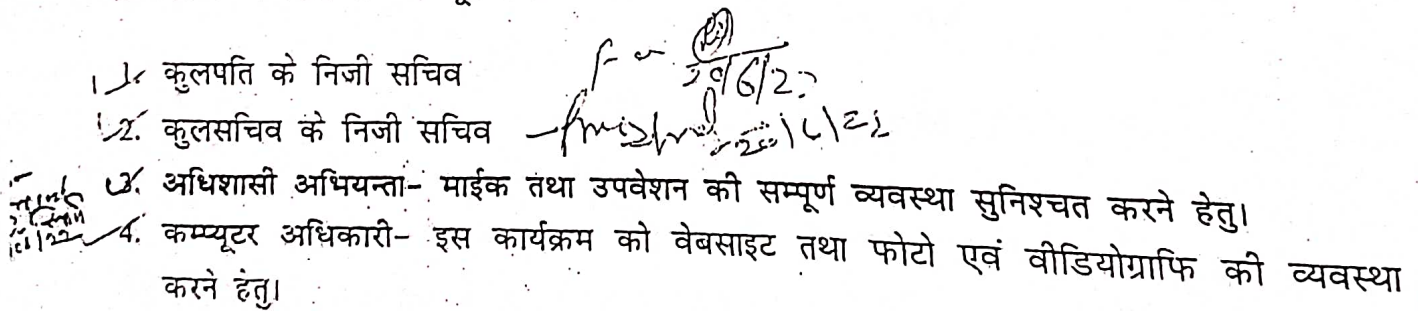 1. कुलपति के निजी सचिव
2. कुलसचिव के निजी सचिव
3. अधिशासी अभियन्ता- माईक तथा उपवेशन की सम्पूर्ण व्यवस्था सुनिश्चत करने हेतु।
4. कम्प्यूटर अधिकारी- इस कार्यक्रम को वेबसाइट तथा फोटो एवं वीडियोग्राफि की व्यवस्था
करने हेतु।